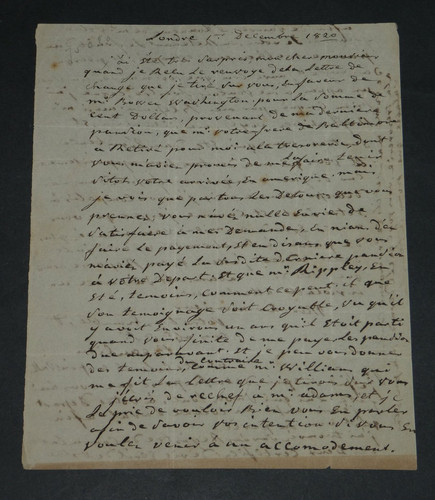 Londre 1er Décembre 1820
J'ai été très surpris mon cher monsieur
quand je Recu le renvoye de la Lettre de
change que j'ai tiré sur vous, en faveur de
mr Washington pour la Somme de
cent Dollar, provenant de ma derniere
pansion, que mr votre frere de
a Retiré pour moi a la tresorerie, dont
vous m'aviez promis de me faire tenir
sitot votre arrivée, en amerique. mais
je vois que par tous les Detours que vous
prennez vous n'avez nulle envie de
satisfaire a mes Demande, en niant d'en
faire le payement, et en disant que vous
m'aviez payé la susdite derniere pansion
a votre Depart; Et que mr Rippley, en
Eté, temoins, comment ce peut il que
son temoignage soit croyable, vu qu'il
y avoit environs un ans qu'il etoit parti
quand vous finite de me payer les pansion
du auparavant. Et je peu vous donne
des temoins du contraire comme mr William qui
me fit la Lettre que je tirois sur vous
j'écris de rechef a mr adams, et je
Le prie de vouloir Bien vous en parler
afin de savoir vos intention si vous En
voulez venir a un accomodement.